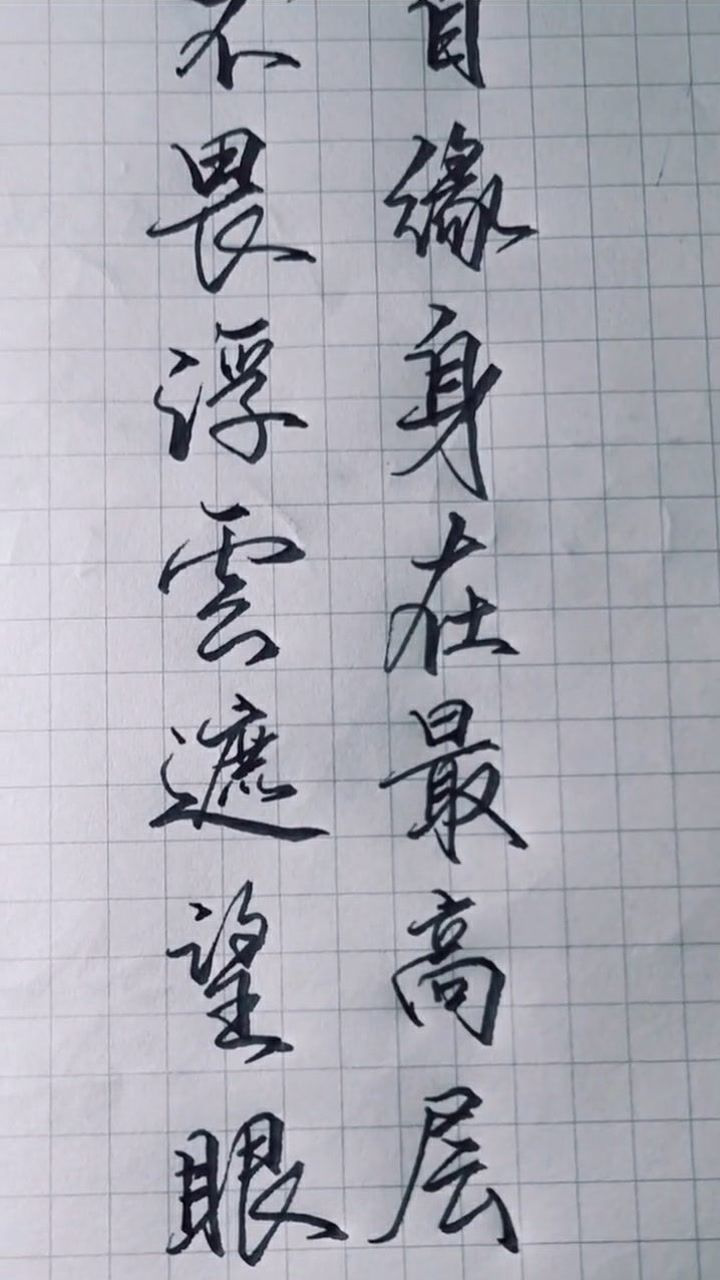 不畏浮雲遮望眼
自缘身在最高层